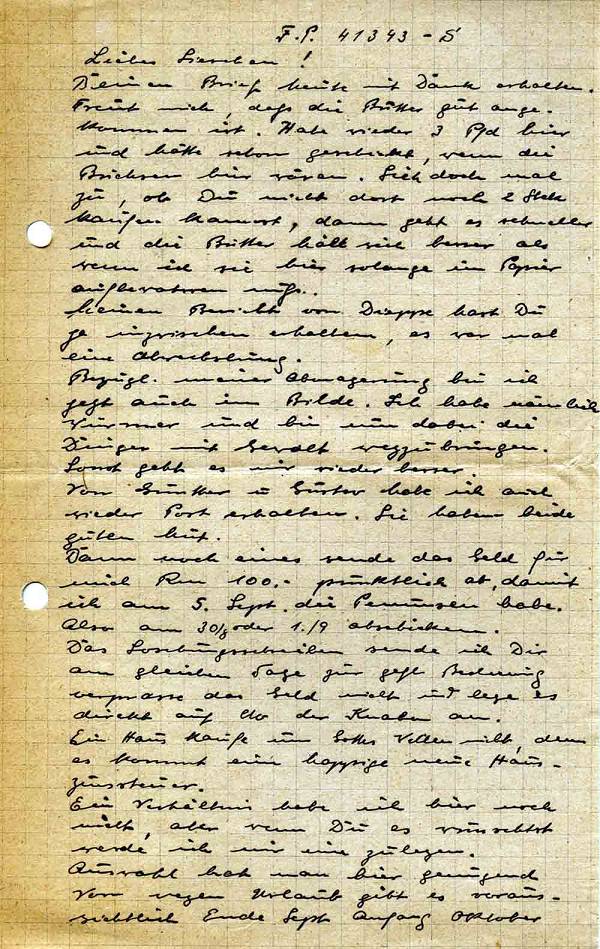 F.P. 41343-S
Liebes Lieschen!
Deinen Brief heute mit Dank erhalten.
Freut mich, dass die Butter gut ange-
kommen ist. Habe wieder 3 Pfd hier
und hätte schon geschickt, wenn die
Büchsen hier wären. Sieh doch mal
zu, ob Du nicht dort noch 2 Stck
kaufen kannst, dann geht es schneller
und die Butter hält sich besser als
wenn ich sie hier solange im Papier
aufbewahren muß.
Meinen Bericht von Dieppe hast Du
ja inzwischen erhalten, es war mal
eine Abwechslung.
Bezügl. meiner Abmagerung bin ich
jetzt auch im Bilde. Ich habe nämlich
Würmer und bin nun dabei die
Dinger mit Gewalt wegzubringen.
Sonst geht es mir wieder besser.
Von Günther u Gustav habe ich auch
wieder Post erhalten. Sie haben beide
guten Mut.
Dann noch eines sende das Geld für
mich Rm 100.- pünktlich ab, damit
ich am 5. Sept. die Penunsen habe.
Also am 30/8 oder 1./9 abschicken.
Das schreiben sende ich Dir
am gleichen Tage zur gefl Bedienung
verprasse das Geld nicht und lege es
direkt auf Cto der Knaben an.
Ein Haus kaufe um Gottes Willen nicht, denn
es kommt eine happige neue Haus-
zinssteuer.
Ein Verhältnis habe ich hier noch
nicht, aber wenn Du es wünschst
werde ich mir eine zulegen.
Auswahl hat man hier genügend
Von wegen Urlaub gibt es voraus-
sichtlich Ende Sept Anfang Oktober